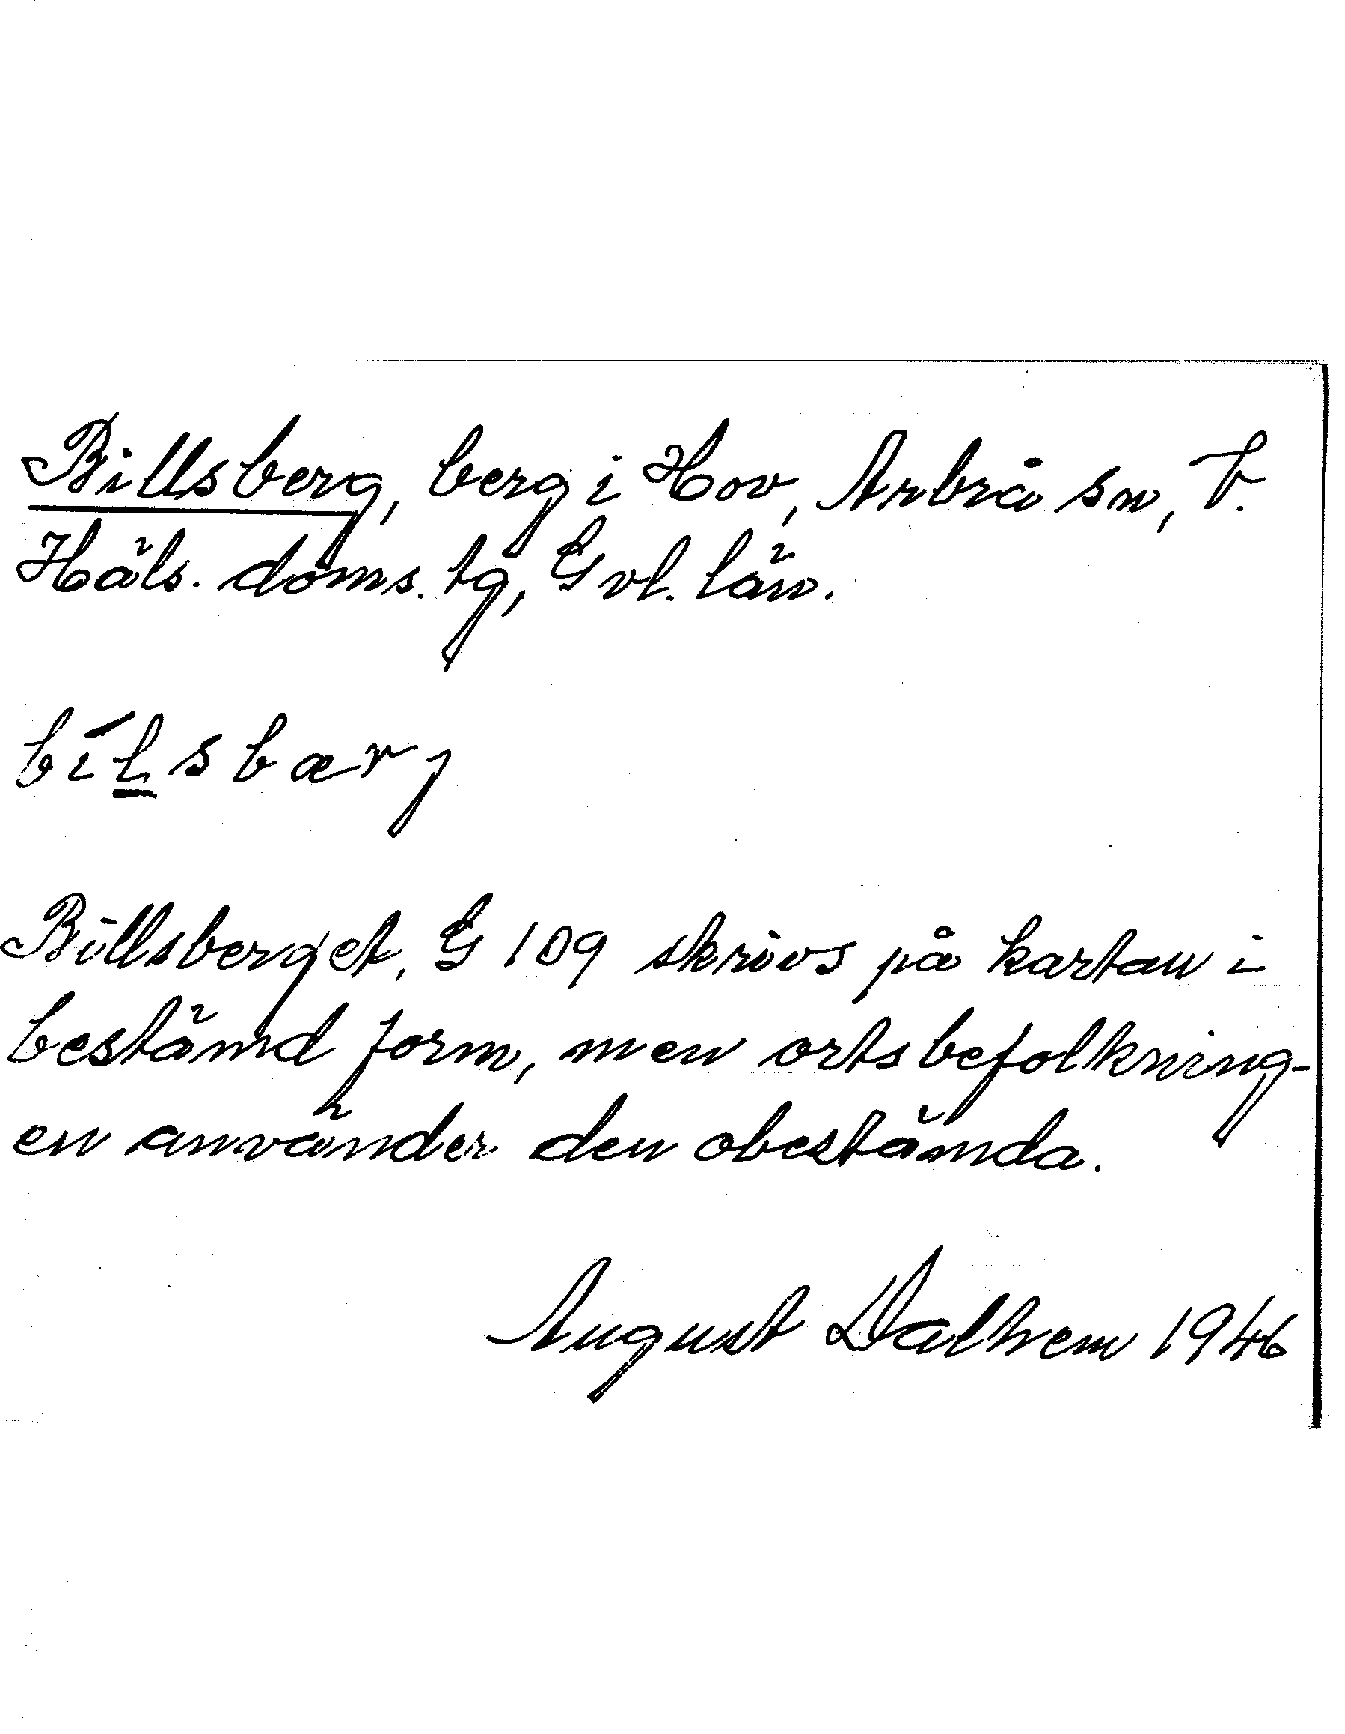 Billsberg, berg i Hov, Arbrå sn, V.
Häls. doms. tg, Gvl. län.
bílsbærj
Billsberget, G 109 skrivs på kartan i
bestämd form, men ortsbefolkning-
en använder den obestämda.
August Dalhem 1946